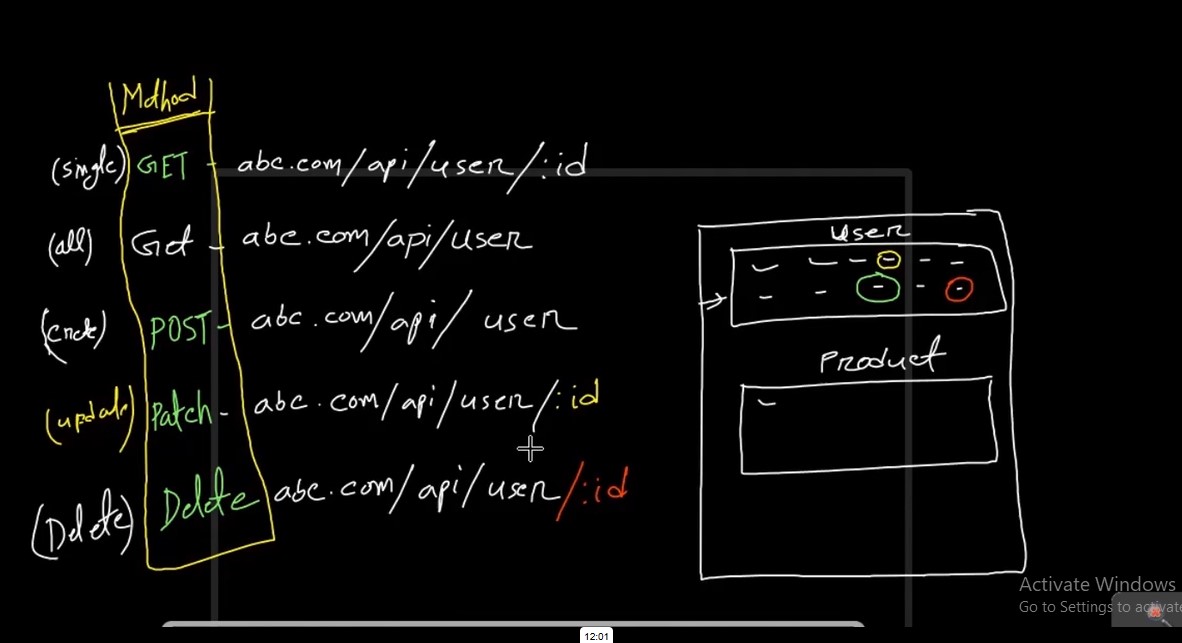 Method
(single) GET - abc.com/api/user/:id
(all) Get - abc.com/api/user
POST - abc.com/api/ user
(update) Patch - abc.com/api/user/:id
(Delete) Delete abc.com/api/user/:id
User
Product
Activate Windows
Go to Settings to activate
12:01